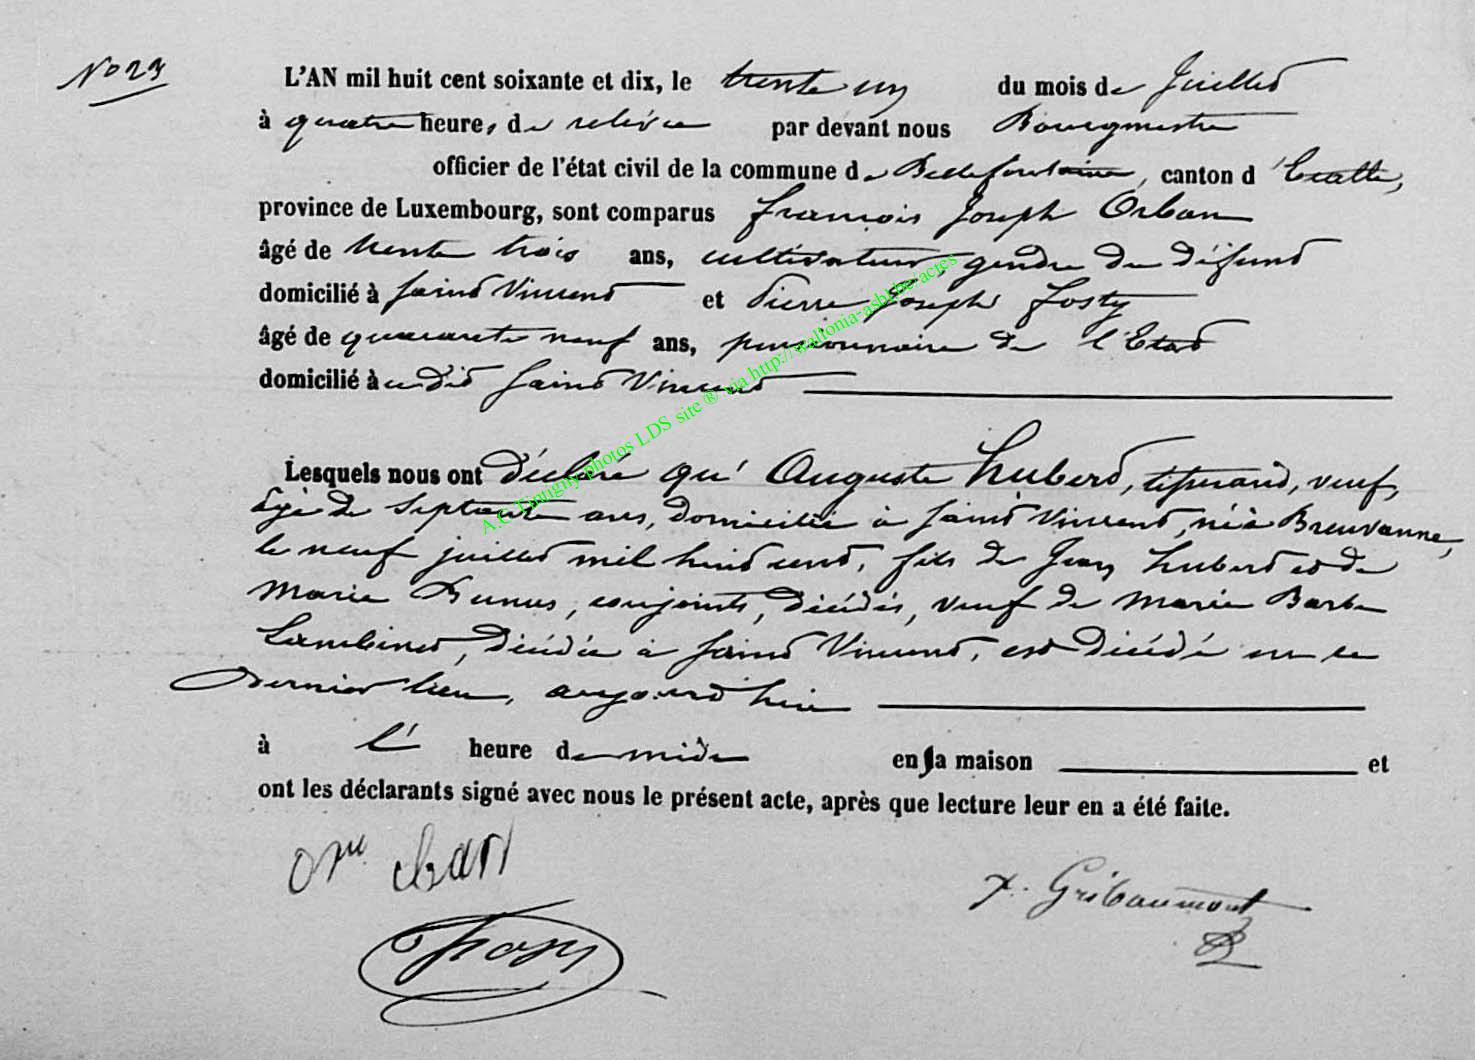 No 23
L'AN mil huit cent soixante et dix, le trente un du mois de Juillet
à quatre heures, de relevée par devant nous Bourgmestre
officier de l'état civil de la commune de Bellefontaine, canton d'Etalle,
province de Luxembourg, sont comparus François Joseph Orban
âgé de trente trois ans, cultivateur, gendre du défunt
domicilié à Saint Vincent et Pierre Joseph
âgé de quarante neuf ans, pensionnaire de l'Etat
domicilié à udit Saint Vincent
Lesquels nous ont déclaré qu' Auguste Hubert, tisserand, veuf,
âgé de septante ans, domicilié à Saint Vincent, né à Breuvanne,
le neuf juillet mil huit cent, fils de Jean Hubert et de
Marie conjoints, décédés, veuf de Marie Barbe
Lambinet, décédée à Saint Vincent, est décédé en ce
dernier lieu, aujourd'hui
à l' heure de midi en sa maison et
ont les déclarants signé avec nous le présent acte, après que lecture leur en a été faite.
A.C Tintigny photos LDS site ® via http://wallonia-asbl.be/actes